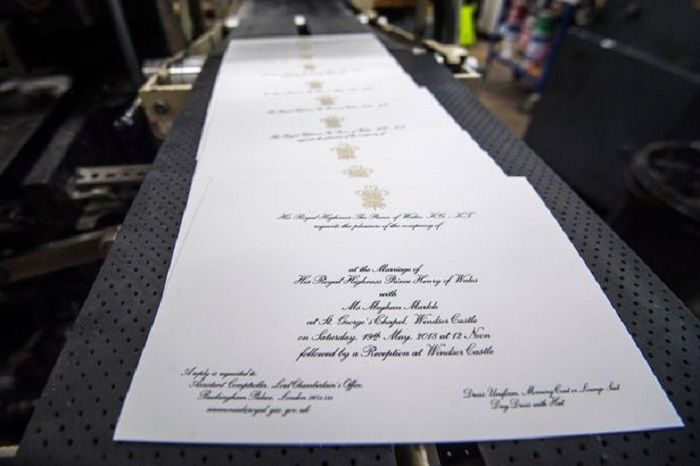 His Royal Highness The Prince of Wales, KG., KT.
requests the pleasure of the company of
at the Marriage of
His Royal Highness Prince Henry of Wales
with
Ms Meghan Markle
at St. George's Chapel, Windsor Castle
on Saturday, 19th May, 2018 at 12 Noon
followed by a Reception at Windsor Castle
A reply is requested to:
Assistant Comptroller, Lord Chamberlain's Office,
Buckingham Palace, London
Dress: Uniform, Morning Coat or Lounge Suit
Day Dress with Hat